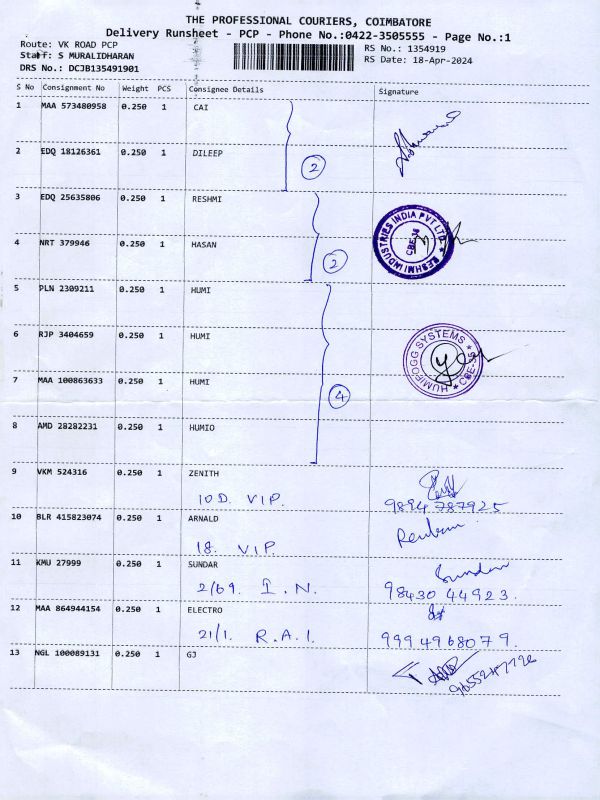 THE PROFESSIONAL COURIERS, COIMBATORE
Delivery Runsheet - PCP - Phone No.:0422-3505555 - Page No.:1
Route: VK ROAD PCP
Staff: S MURALIDHARAN
DRS No.: DCJB135491901
RS No.: 1354919
RS Date: 18-Apr-2024
S No Consignment No Weight PCS Consignee Details Signature
1 MAA 573480958 0.250 1 CAI
2 EDQ 18126361 0.250 1 DILEEP
2
3 EDQ 25635806 0.250 1 RESHMI
RESHMI INDUSTRIES INDIA PVT LTD
CBE-35
4 NRT 379946 0.250 1 HASAN
2
5 PLN 2309211 0.250 1 HUMI
6 RJP 3404659 0.250 1 HUMI
HUMIFOGG SYSTEMS * CBE-35 *
7 MAA 100863633 0.250 1 HUMI
4
8 AMD 28282231 0.250 1 HUMIO
9 VKM 524316 0.250 1 ZENITH
10 D. VIP. 9894787925
10 BLR 415823074 0.250 1 ARNALD Reuban
18. VIP.
11 KMU 27999 0.250 1 SUNDAR Sundar
2/69. I.N. 98430 44923.
12 MAA 864944154 0.250 1 ELECTRO
21/1. R.A.I. 9994968079.
13 NGL 100089131 0.250 1 GJ